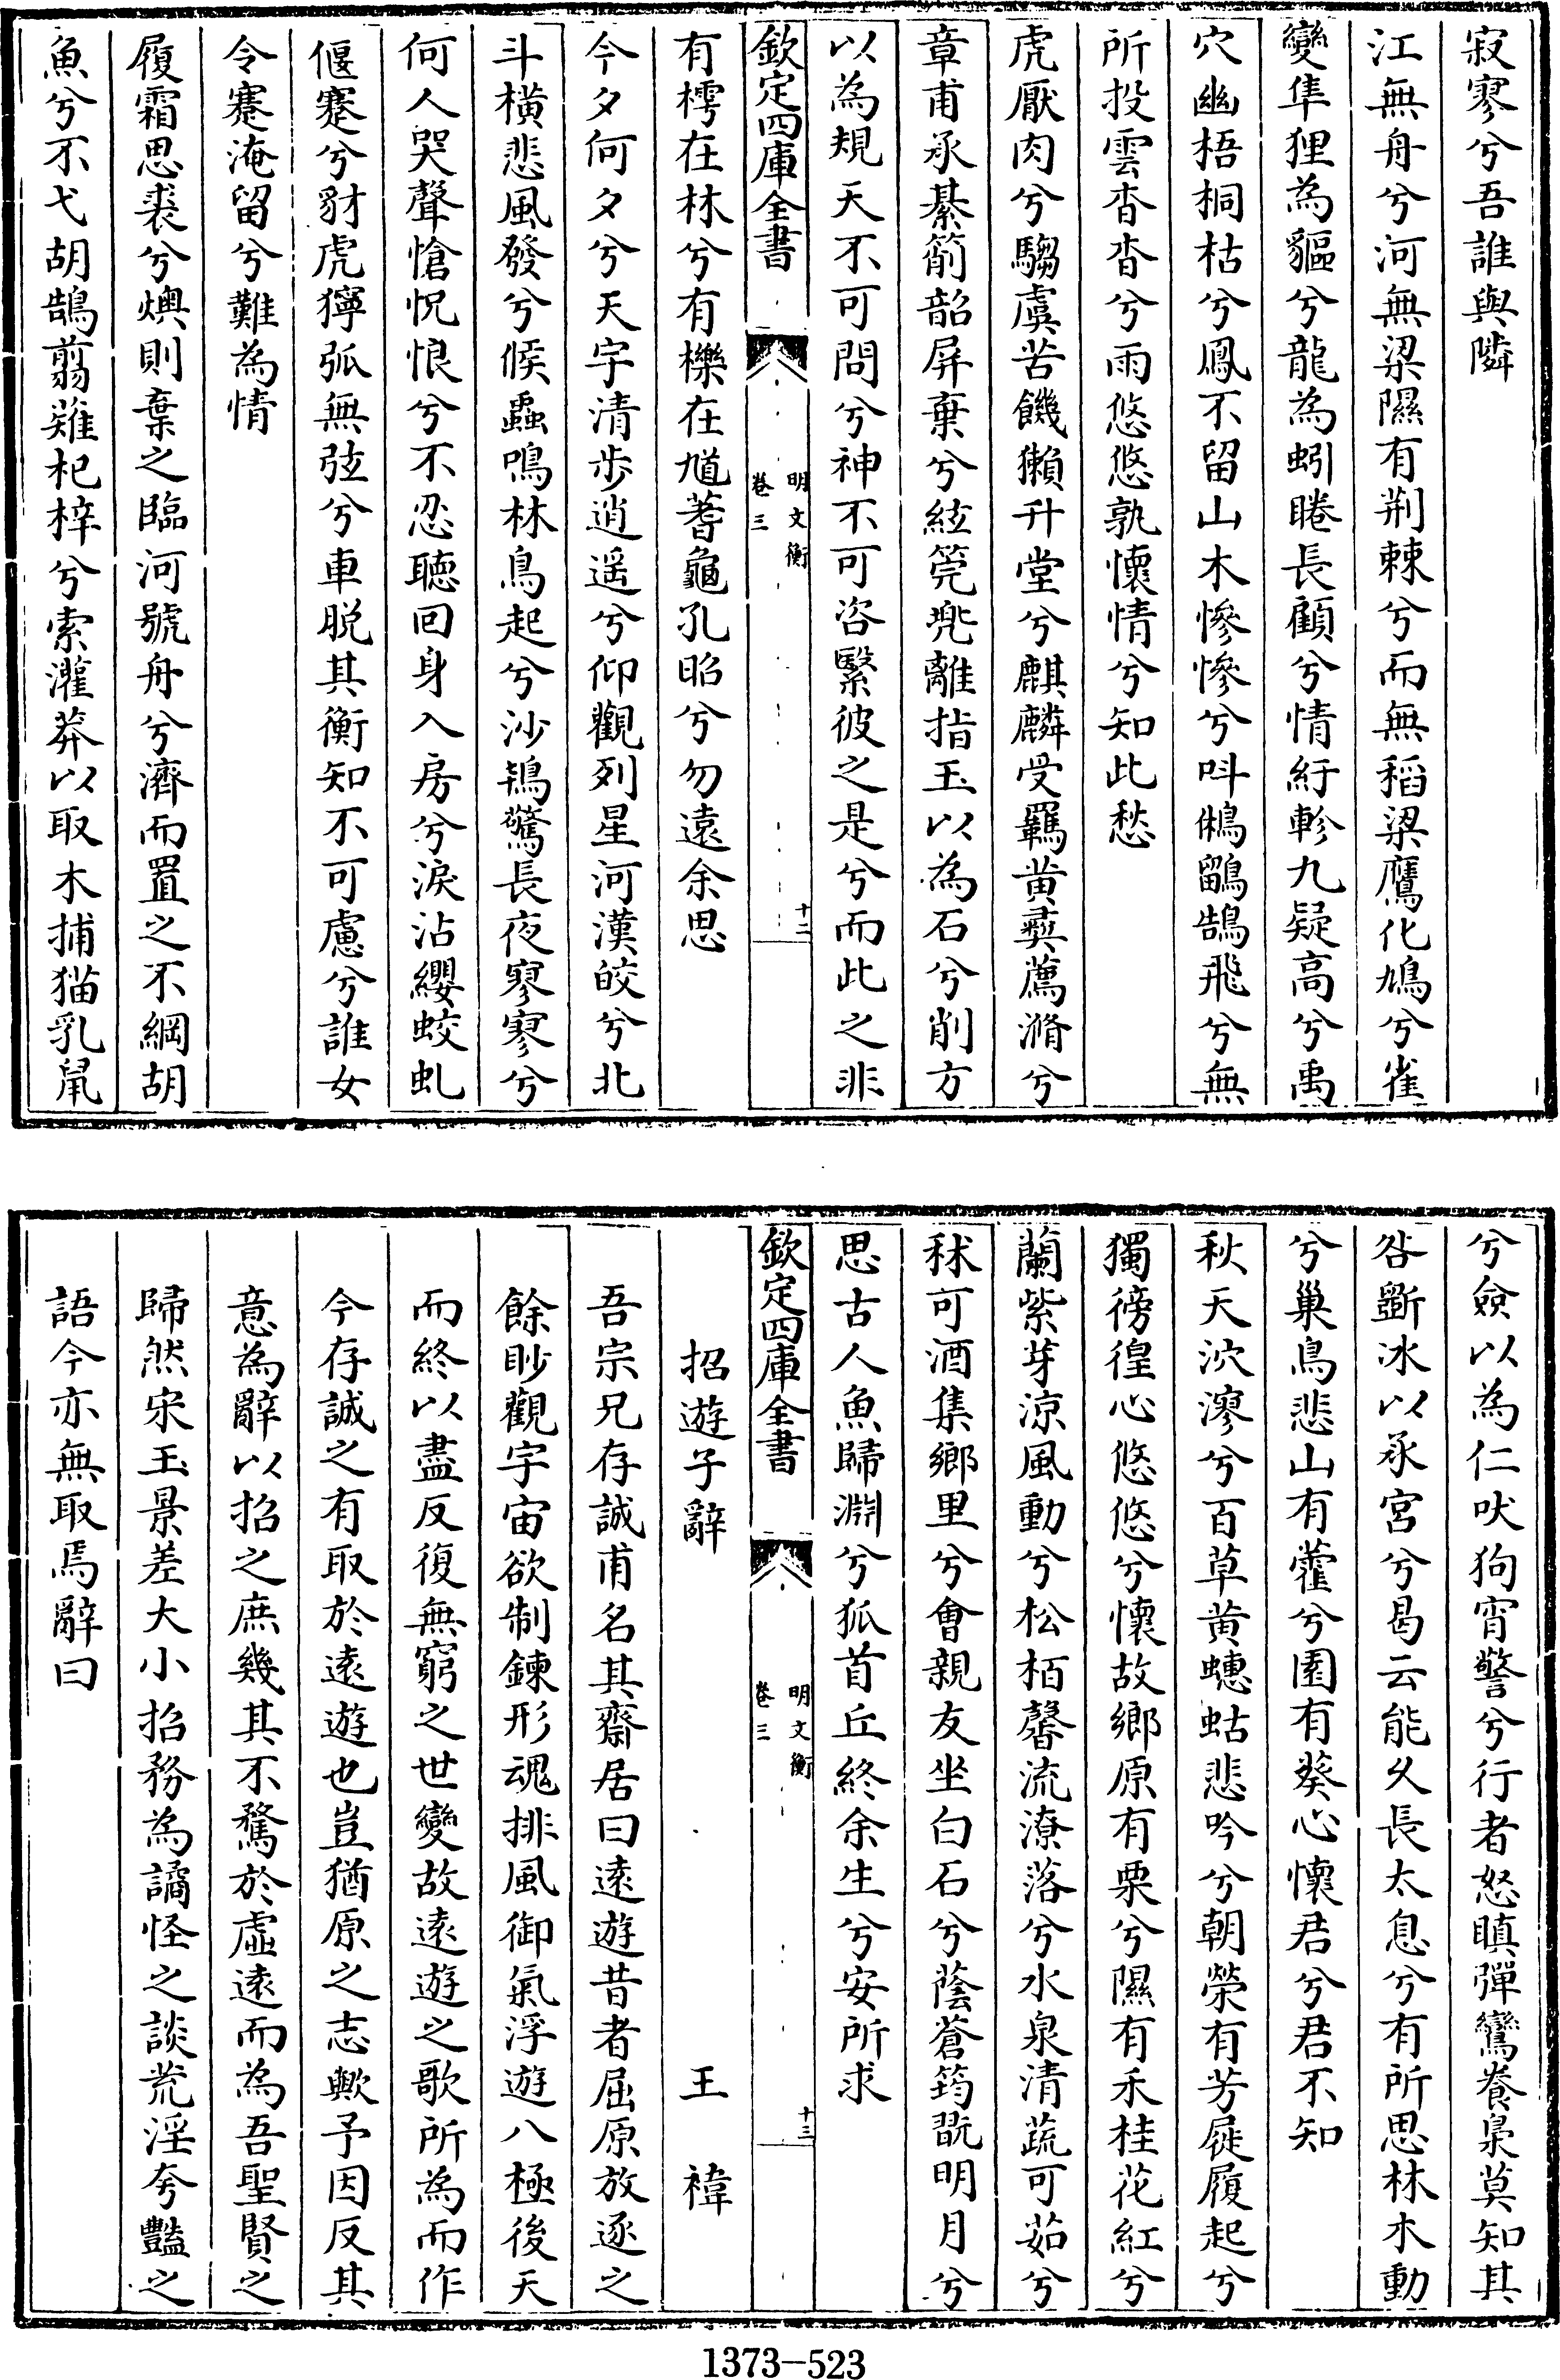 寂寥兮吾誰與隣
江無舟兮河無梁隰有荆棘兮而無稻粱鷹化鳩兮雀
變隼狸為貙兮龍為蚓睠長顧兮情紆軫九疑高兮禹
穴幽梧桐枯兮鳳不留山木慘慘兮呌鵂鶹鵠飛兮無
所投雲杳杳兮雨悠悠孰懷情兮知此愁
虎厭肉兮騶虞苦饑獺升堂兮麒麟受羈黄彛薦滫兮
章甫承綦箾韶屏棄兮紘筦兠離指玉以為石兮削方
以為規天不可問兮神不可咨繄彼之是兮而此之非
欽定四庫全書
明文衡
卷三
十二
有樗在林兮有櫟在馗蓍龜孔昭兮勿遠余思
今夕何夕兮天宇清步逍遥兮仰觀列星河漢皎兮北
斗橫悲風發兮候蟲鳴林鳥起兮沙鴇驚長夜寥寥兮
何人哭聲愴怳悢兮不忍聴回身入房兮淚沾纓蛟虬
偃蹇兮豺虎獰弧無弦兮車脱其衡知不可處兮誰女
令蹇淹留兮難為情
履霜思裘兮燠則棄之臨河號舟兮濟而置之不綱胡
魚兮不弋胡鵠翦薙杞梓兮索灌莽以取木捕猫乳䑕
兮僉以為仁吠狗宵警兮行者怒瞋彈鸞養梟莫知其
咎斵冰以承宮兮曷云能久長太息兮有所思林木動
兮巢鳥悲山有藿兮園有葵心懷君兮君不知
秋天泬漻兮百草黄蟪蛄悲吟兮朝榮有芳屣履起兮
獨徬徨心悠悠兮懷故鄉原有栗兮隰有禾桂花紅兮
蘭紫芽涼風動兮松栢馨流潦落兮水泉清蔬可茹兮
秫可酒集鄉里兮會親友坐白石兮蔭蒼筠翫明月兮
思古人魚歸淵兮狐首丘終余生兮安所求
欽定四庫全書
明文衡
卷三
十三
招遊子辭 王禕
吾宗兄存誠甫名其齋居曰遠遊昔者屈原放逐之
餘眇觀宇宙欲制鍊形魂排風御氣浮遊八極後天
而終以盡反復無窮之世變故遠遊之歌所為而作
今存誠之有取於遠遊也豈猶原之志歟予因反其
意為辭以招之庶幾其不騖於虛遠而為吾聖賢之
歸然宋玉景差大小招務為譎怪之談荒淫夸豔之
語今亦無取焉辭曰
1373-523